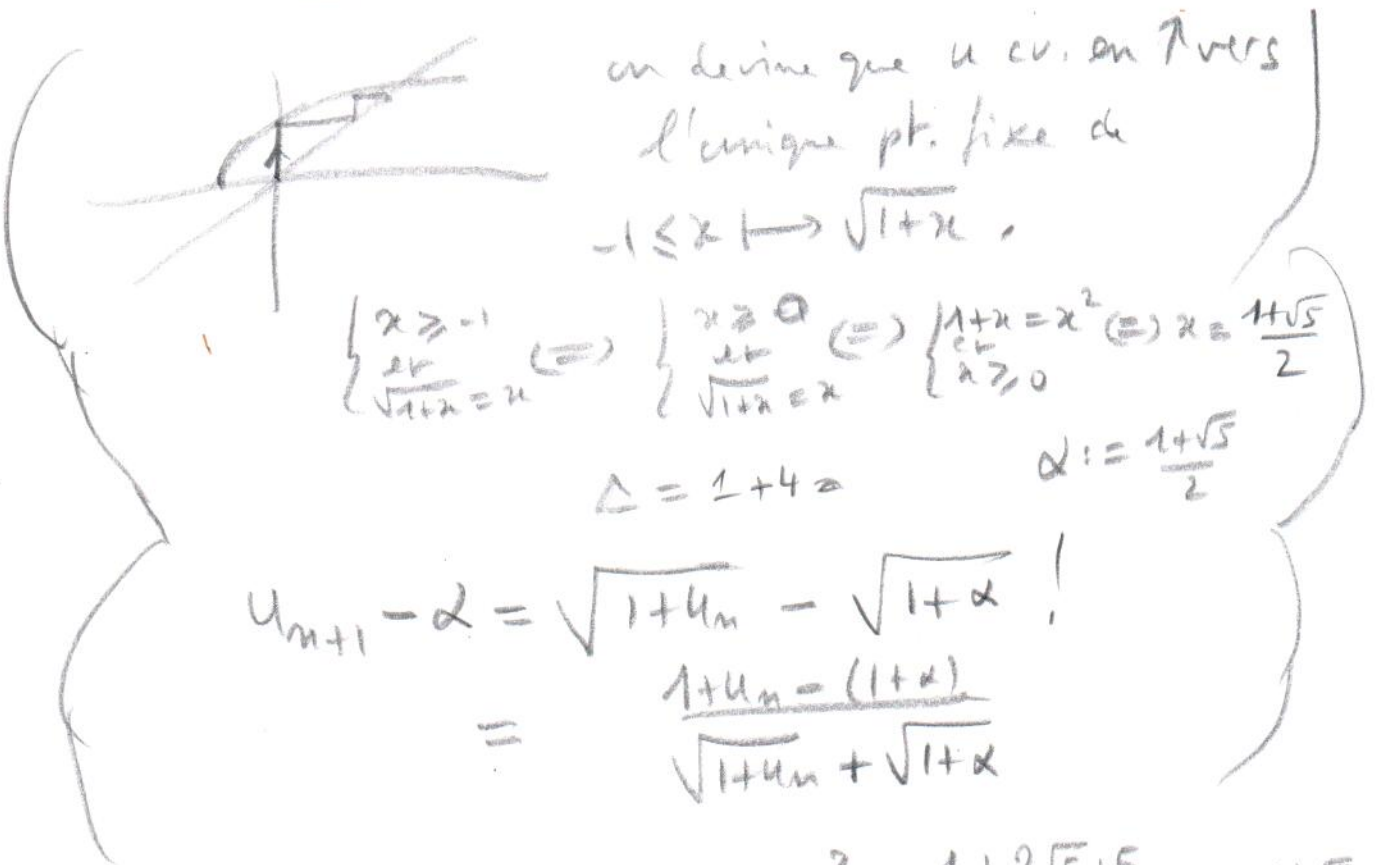 on devine que u cv. en ↑ vers
l'unique pt. fixe de
-1 ≤ x ↦ √(1+x) .
{ x ⩾ -1 et √(1+x) = x ⇔ { x ⩾ 0 et √(1+x) = x ⇔ { 1+x = x² et x ⩾ 0 ⇔ x = (1+√5)/2
Δ = 1+4 =
α := (1+√5)/2
u_{n+1} - α = √(1+u_n) - √(1+α) !
= (1+u_n - (1+α))/(√(1+u_n) + √(1+α))